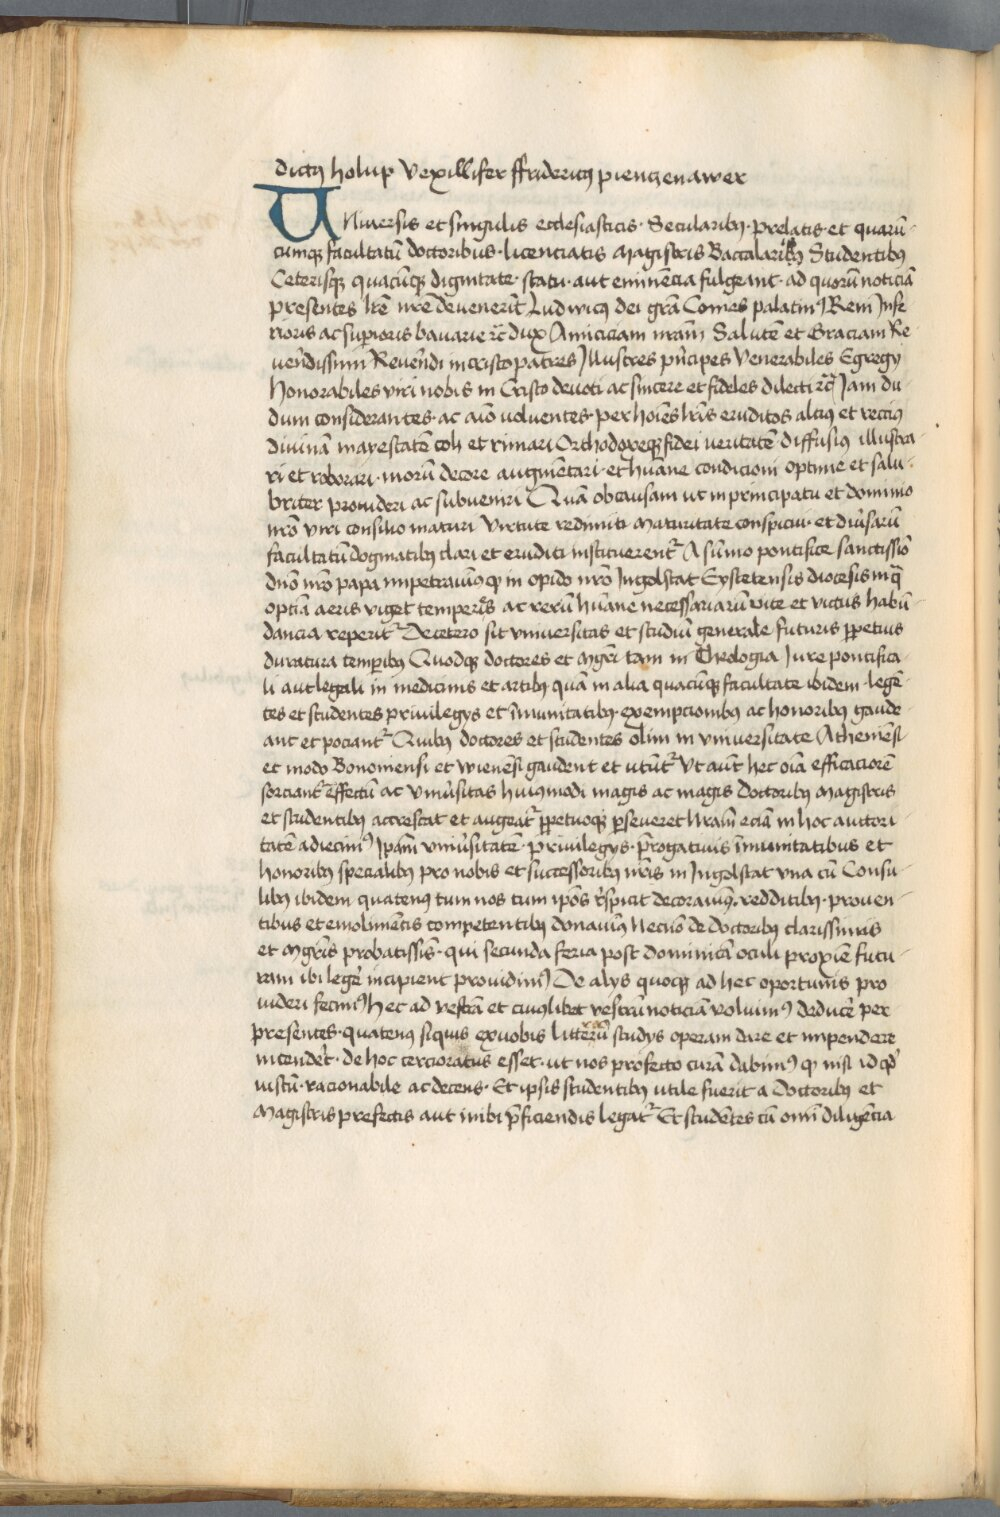 dictꝰ holup vexillifer ffridericꝰ pienczenawer
Uniuersis et singulis ecclesiasticis · Secularibꝫ · prelatis et quarū-
cumqꝫ facultatū doctoribus · licenciatis Magistris Baccalarijs Studentibꝫ
Ceterisqꝫ quacūqꝫ dignitate · statu · aut eminēcia fulgeant · ad quorū noticiā
presentes lr̄e nr̄e deuenerīt Ludwicꝰ dei grā Comes palatinꝰ Reni Infe-
rioris ac suꝑioris bauarie ꝛc̄ dux Amiciciam nr̄am Salutē et Graciam Re-
uerēdissimi Reuerēdi in cristo patres Illustres prīcipes Venerabiles Egregij
honorabiles viri nobis in Cristo deuoti ac sincere et fideles dilecti ꝛc̄ Jam du-
dum considerantes · ac aīo voluentes · per hoīes lr̄is eruditos alciꝰ et recciꝰ
diuinā maiestatē coli et rimari Orthodoxeqꝫ fidei veritatē diffusiꝰ illustra-
ri et roborari · morū decore augmētari · et huane condicioni optime et salu-
briter prouideri ac subueniri Quā ob causam ut in principatu et dominio
nr̄o viri consilio maturi virtute redimiti Maturitate conspicui · et diuersarū
facultatū dogmatibꝫ clari et eruditi instituerentᷣ A sūmo pontifice sanctissīo
dn̄o nr̄o papa impetrauimꝰ ꝙ in opido nr̄o Ingolstat Eystetensis diocesis in q̄
optīa aeris viget temperīes ac rerū hūane necessariarū vite et victus habū-
dancia reperitᷣ Decetero sit vniuersitas et studiū generale futuris ꝑpetuis
duratura temꝑibꝫ Quodqꝫ doctores et Mgr̄i tam in Theologia Jure pontifica-
li aut legali in medicinis et artibꝫ quā in alia quacūqꝫ facultate ibidem · legē-
tes et studentes priuilegijs et īmunitatibꝫ · exempcionibꝫ ac honoribꝫ gaude-
ant et pociantᷣ Quibꝫ doctores et studentes olim in vniuersitate Athenēsi
et modo Bononiensi et wienēsi gaudent et utūtᷣ Vt aūt hec oīa efficaciorē
sorciantᷣ effectū ac vniūsitas huiꝰmodi magis ac magis Doctoribꝫ Magistris
et studentibꝫ accrescat et augeatᷣ ꝑpetuoqꝫ ꝑseueret Nr̄am eciā in hoc auctori-
tatē adiecimꝰ Ipam̄ vniūsitatē · priuilegijs · prerogatiuis īmunitatibus et
honoribꝫ specialibꝫ pro nobis et successoribꝫ nr̄is in Ingolstat vna cū Consu-
libꝫ ibidem quatenꝰ tum nos tum ipōs respicit decorauimꝰ · redditibꝫ · prouen-
tibus et emolimētis competentibꝫ donauimꝰ Necnō de doctoribꝫ clarissimis
et Mgr̄is probatissīs · qui secunda feria post dominicā oculi proxīe futu-
ram ibi legere incipient prouidimꝰ De alijs quoqꝫ ad hec oportunis pro-
uideri fecimꝰ hec ad vestrā et cuiꝰlibet vestrū noticiā voluimꝰ deducere per
presentes · quatenꝰ siquis ex vobis litterarū studijs operam dare et impendere
intenderet · de hoc cercioratus esset · ut nos profecto curā dabimꝰ ꝙ nisi id qd̕
iustū · racionabile ac decens · Et ipsis studentibꝫ utile fuerit a Doctoribꝫ et
Magistris prefectis aut inibi p̄ficiendis legatᷣ Et studētes cū omī diligēcia